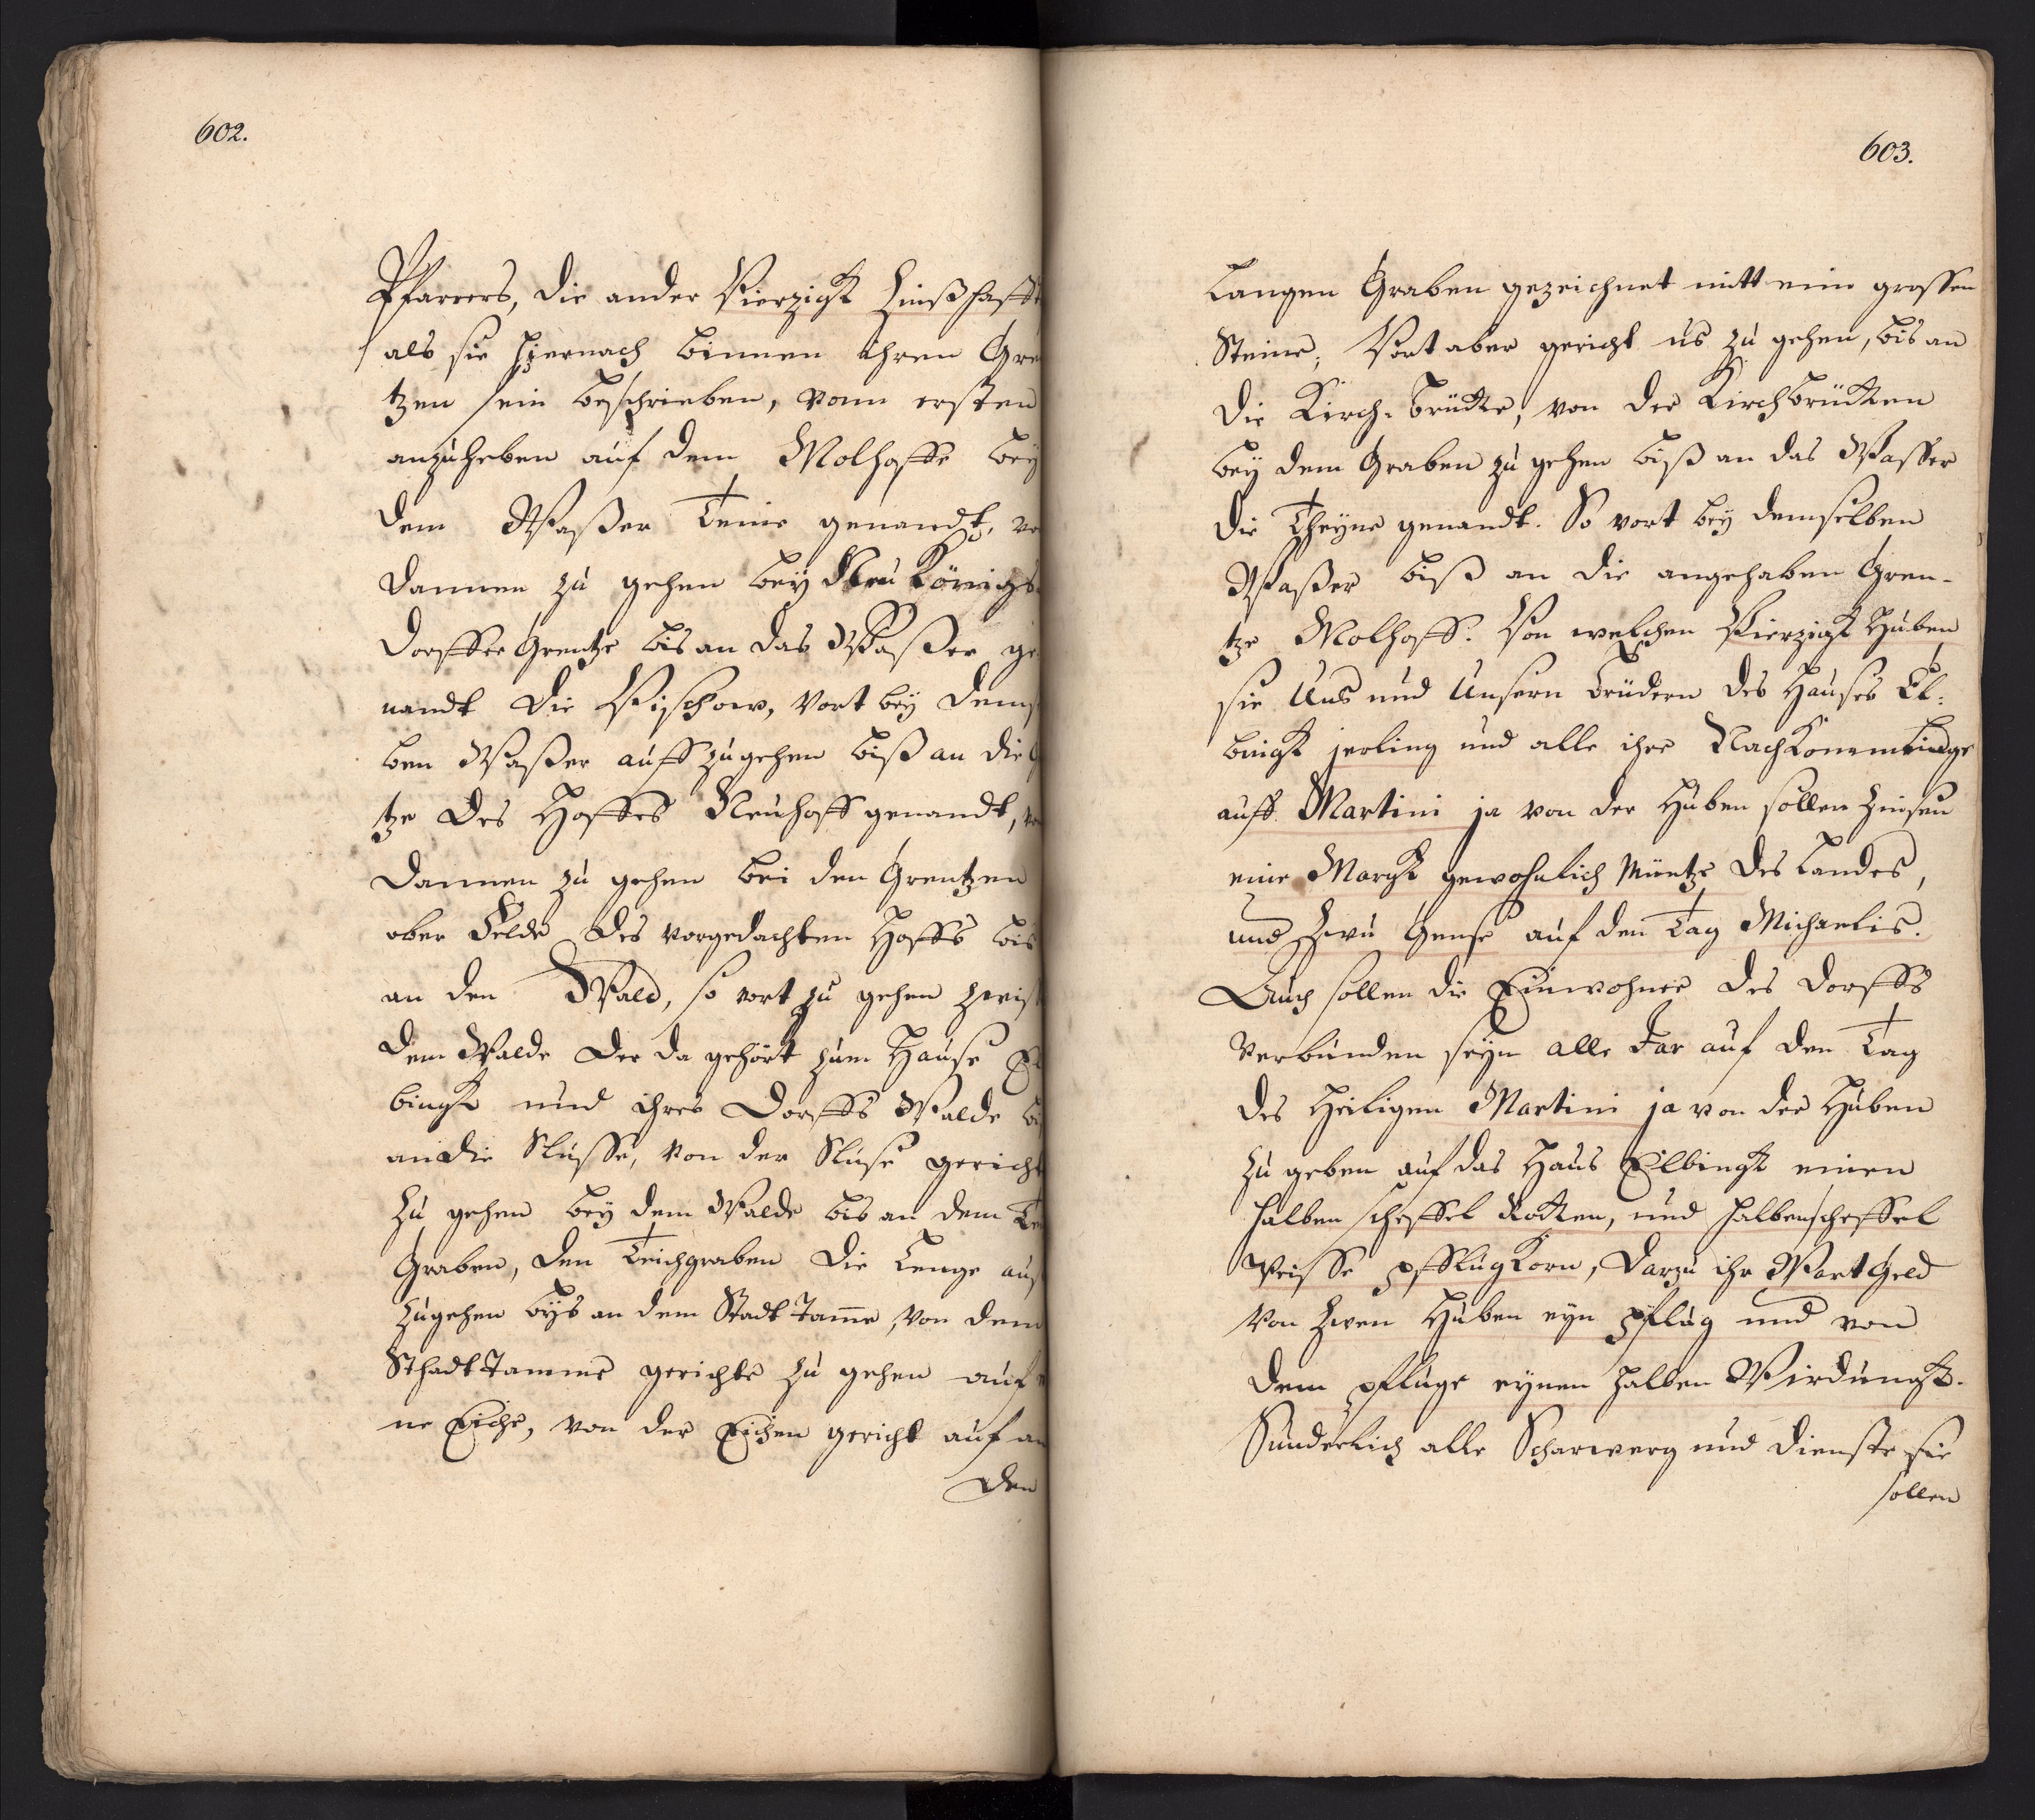 602.
Pfarrers, die ander Vierzigk Zinßhafft
als sie hiernach binnen ihren Gre
tzen sein beschrieben, vom ersten
anzuheben auf dem Molhoffe bey
dem Waßer Teine genandt, vo
dannen zu gehen bey Neu Königs-
dorffer Grentze bis an das Waßer ge
nandt die Vischow, Vort bey dems
ben Waßer auffzugehen biß an die G
tze des Hoffes Neuhoff genandt, vo
dannen zu gehen bei den Grentzen
ober Felde des vorgedachten Hoffs bis
an den Wald, so vort zu gehen zwisch
dem Walde der da gehört zum Hause El
bingk und ihres Dorffs Walde bi
an die Slusse, von der Sluse gericht
zu gehen bey dem Walde bis an dem Te
Graben, den Teichgraben die Lenge auf
zugehen bys an dem Stadt Tam̄e, Von dem
Sthadt Tamme gerichte zu gehen auf e
ne Eiche, von der Eichen gericht auf an
den
603.
Langen Graben gezeichnet mitt eim grossen
Steine, Vort aber gericht us zu gehen, bis an
die Kirch-brücke, von der Kirchbrücken
bey dem Graben zu gehen biß an das Wasser
die Theyne genandt. So vort bey demselben
Waßer biß an die angehaben Gren-
tze Molhoff. Von welchen Vierzigk Huben
sie Uns und Unsern brüdern des Hauses El-
bingk jerling und alle ihre Nachkommlinge
auff Martini ja von der Huben sollen Zinsen
eine Margk gewohnlich Müntze des Landes,
und Zwu Gense auf den Tag Michaelis.
Auch sollen die Einwohner des Dorffs
Verbunden seyn alle Jar auf den Tag
des Heiligen Martini ja von der Huben
zu geben auf das Haus Elbingk einen
halben scheffel Rocken, und halbenscheffel
Weisse pfflugkorn, Darzu ihr Wartgeld
Von Zwen Huben eyn pflug und von
dem pfluge eynen halben Virdungk.
Sunderlich alle Scharwerg und dienste sie
sollen